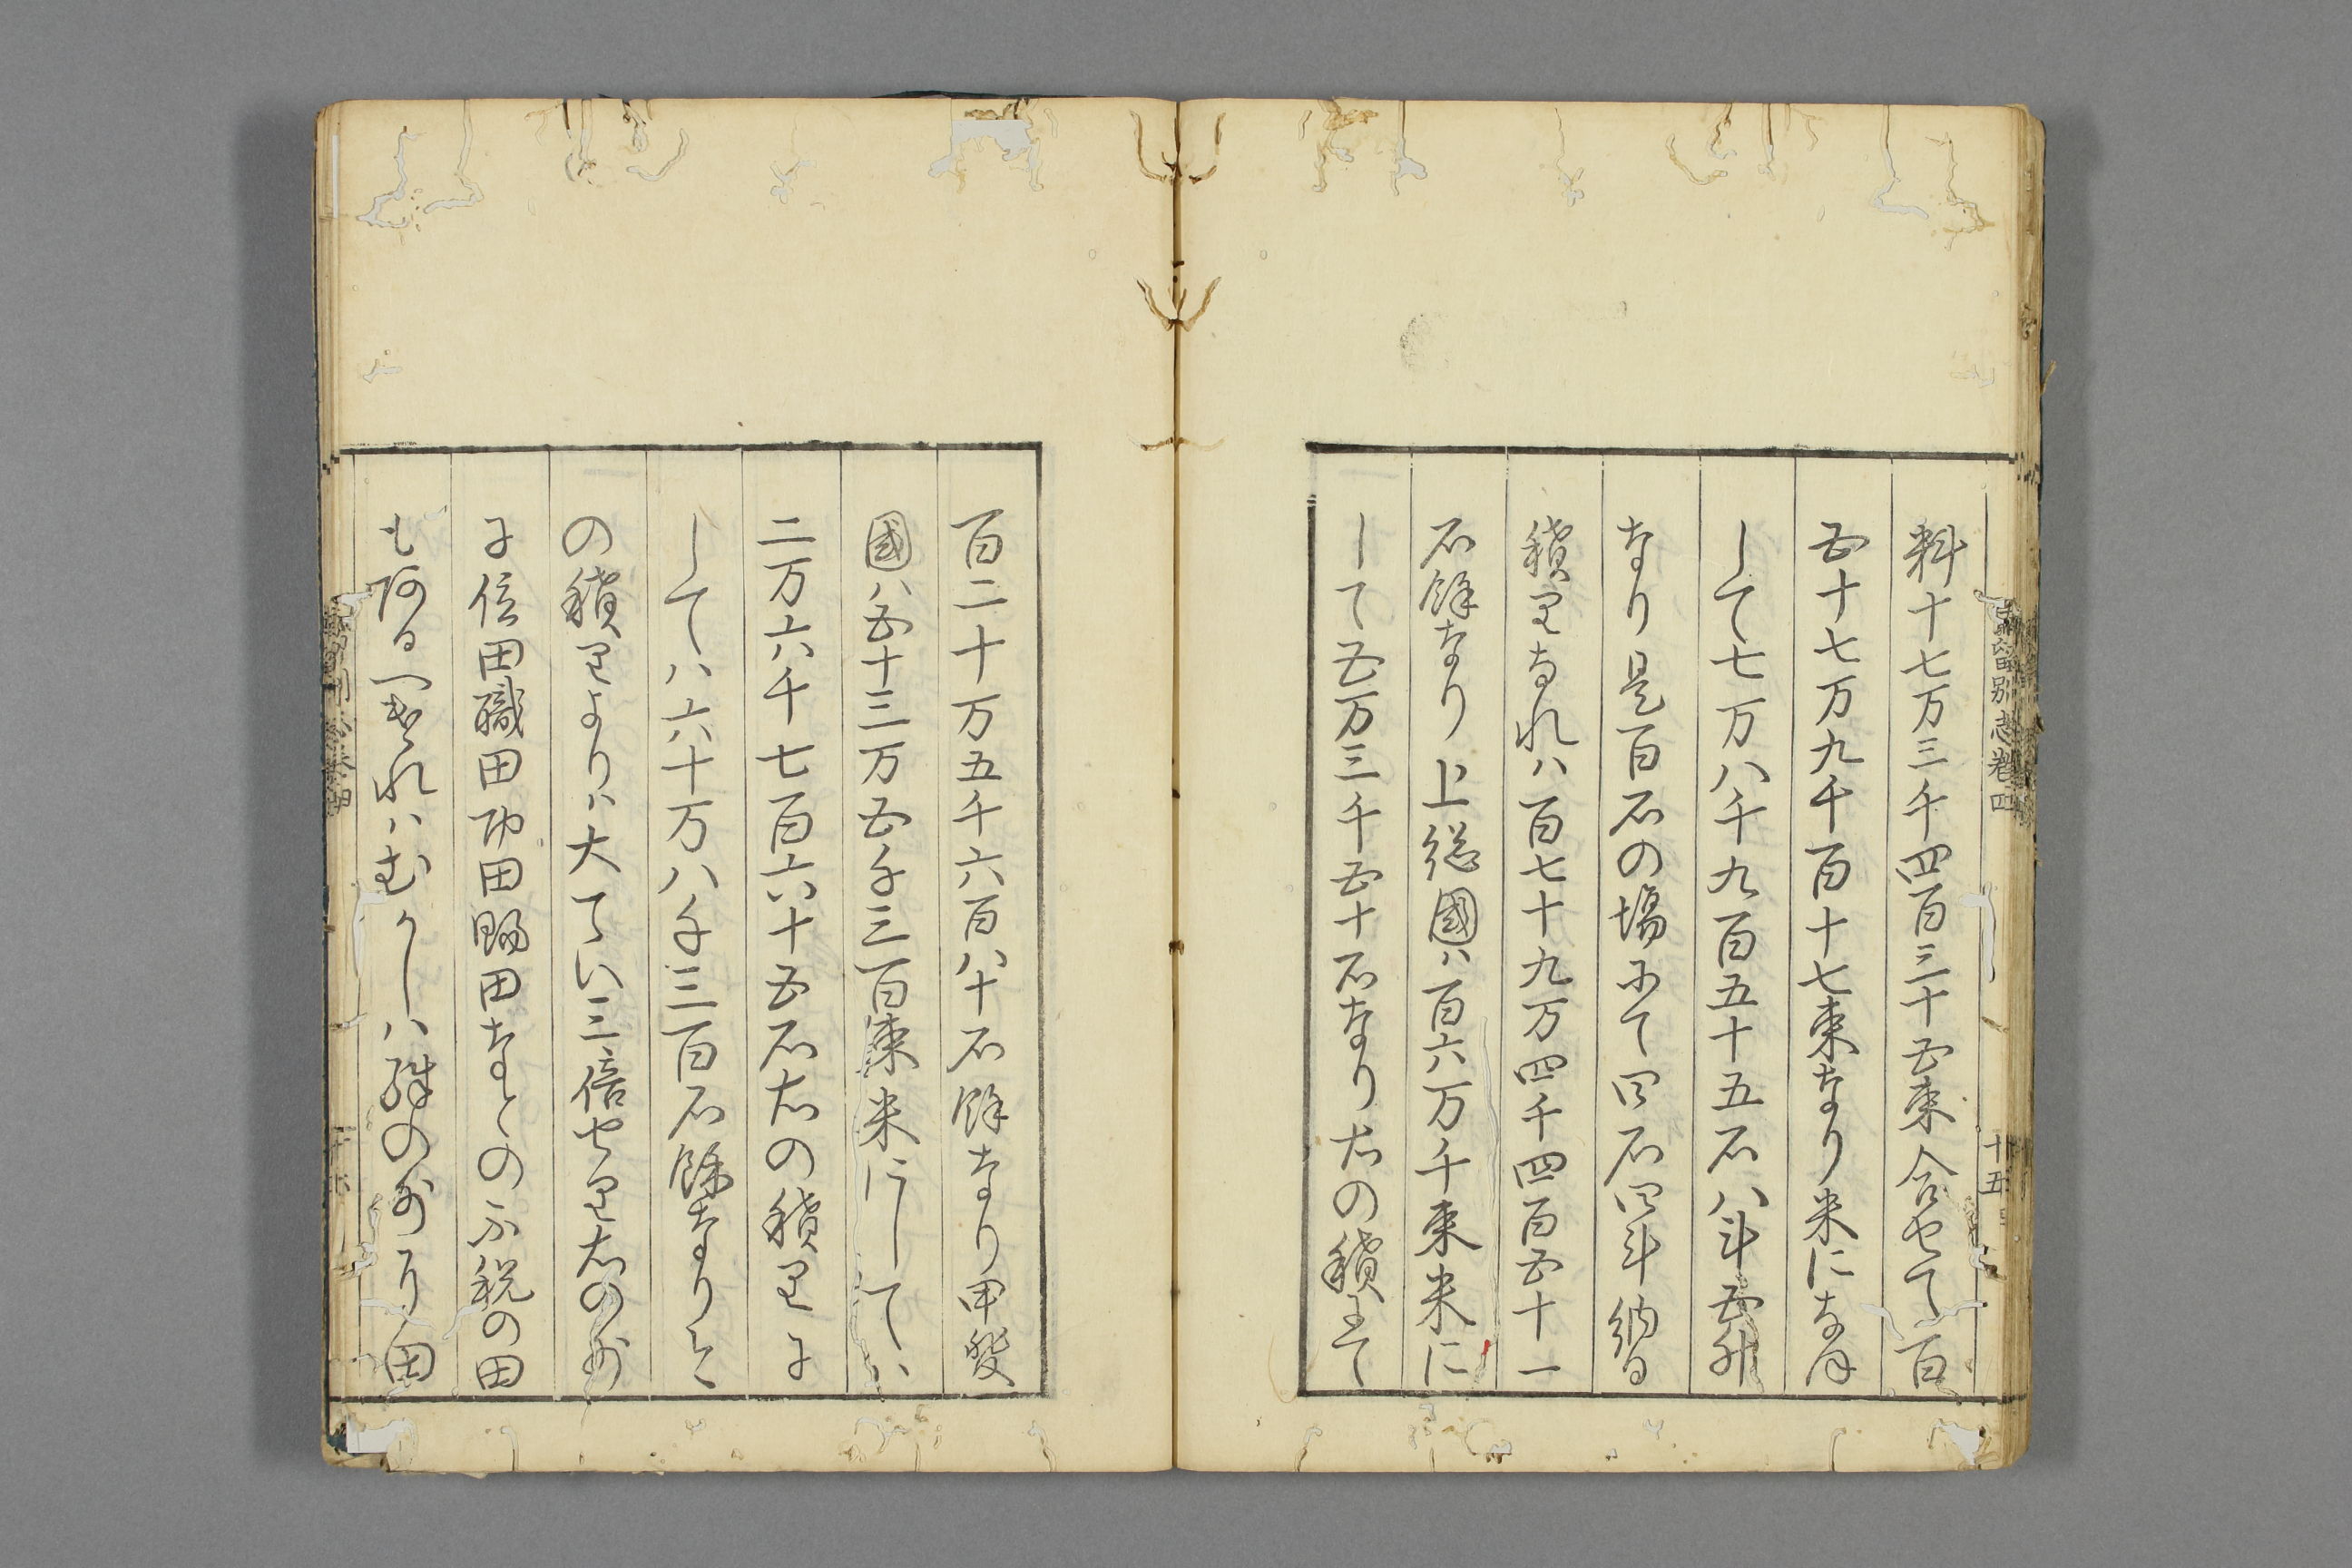 料十七万三千四百三十五束合せて百
五十七万九千百十七束なり米になほ
して七万八千九百五十五石八斗五升
なり是百石の場にて四石四斗納る
積りなれハ百七十九万四千四百五十一
石餘なり上総國ハ百六万千束米に
して五万三千五十石なり右の積にて
百二十万五千六百八十石餘なり甲斐
國ハ五十三万五千三百束米にしてハ
二万六千七百六十五石右の積りに
してハ六十万八千三百石餘なり今
の積りよりハ大てい三倍せり右の外
に位田職田功田賜田なとの不税の田
も阿るへけれハむかしハ殊の外に田
別志巻四
十五